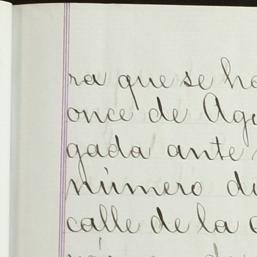 ra que se ha
once de Ag
gada ante
número d
calle de la